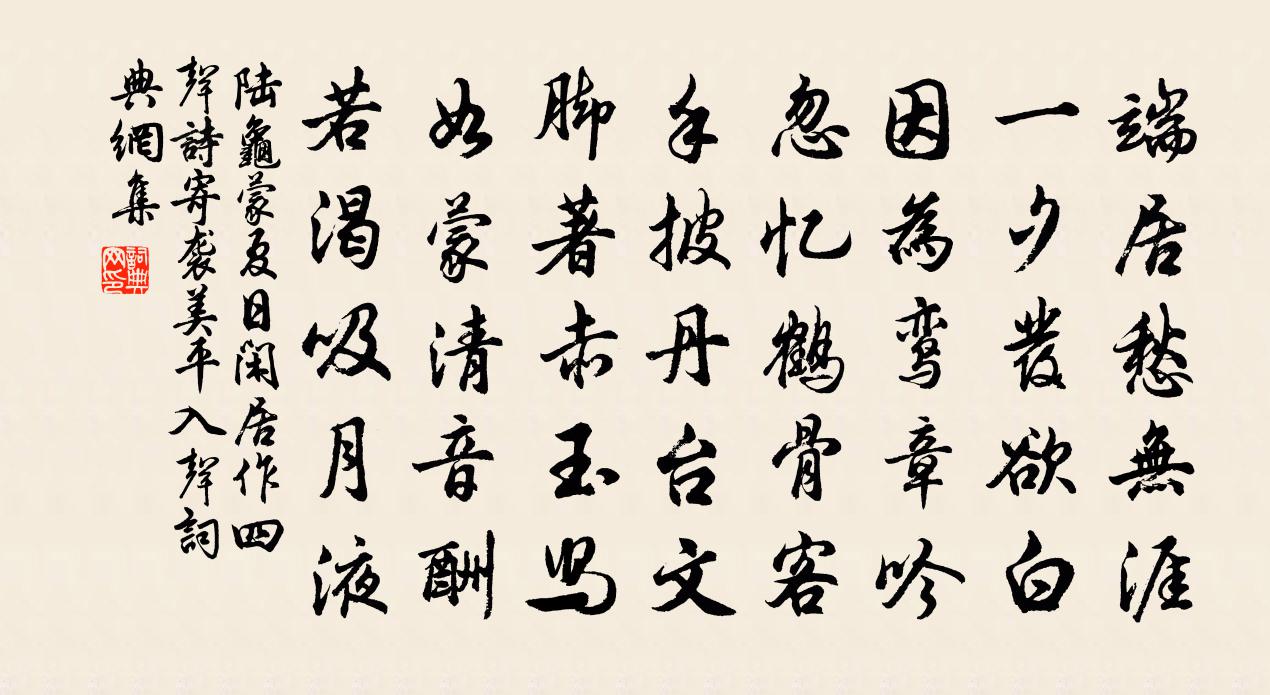 端居愁無涯
一夕發欲白
因為鸾章吟
忽忆鶴骨客
手披丹台文
脚著赤玉舄
如蒙清音酬
若渴吸月液
陆龜蒙夏日闲居作四
聲詩寄袭美平入聲詞
典網集
詞典网印